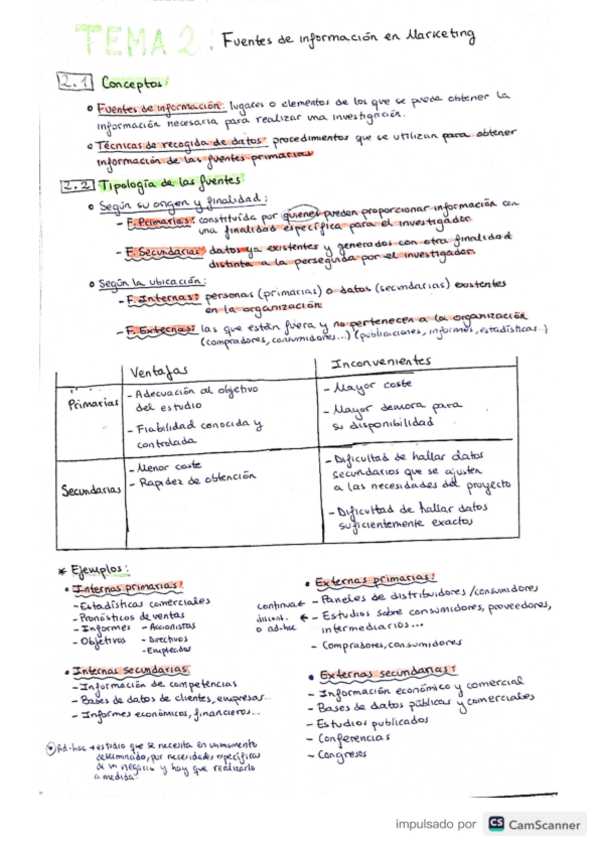 TEMA 2: Fuentes de información en Marketing
2.1 Conceptos:
o Fuentes de información: lugares o elementos de los que se puede obtener la
información necesaria para realizar una investigación.
o Técnicas de recogida de datos: procedimientos que se utilizan para obtener
información de las fuentes primarias
2.2 Tipología de las fuentes
o Según su origen y finalidad:
- F. Primarias: constituída por quienes pueden proporcionar información con
una finalidad específica para el investigador
- F. Secundarias: datos ya existentes y generados con otra finalidad
distinta a la perseguida por el investigador
o Según la ubicación:
- F. Internas: personas (primarias) o datos (secundarias) existentes
en la organización
- F. Externas: las que están fuera y no pertenecen a la organización
(compradores, consumidores...) (publicaciones, informes, estadísticas..)
Ventajas
Inconvenientes
Primarias
- Adecuación al objetivo
del estudio
- Fiabilidad conocida y
controlada
- Mayor coste
- Mayor demora para
su disponibilidad
Secundarias
- Menor coste
- Rapidez de obtención
- Dificultad de hallar datos
secundarios que se ajusten
a las necesidades del proyecto
- Dificultad de hallar datos
suficientemente exactos
* Ejemplos:
• Internas primarias:
- Estadísticas comerciales
- Pronósticos de ventas
- Informes - Accionistas
- Objetivos - Directivos
- Empleados
• Externas primarias:
continua ← - Paneles de distribuidores / consumidores
discont. o ad-hoc ← - Estudios sobre consumidores, proveedores,
intermediarios...
- Compradores, consumidores
• Internas secundarias:
- Información de competencias
- Bases de datos de clientes, empresas..
- Informes económicos, financieros...
• Externas secundarias:
- Información económico y comercial
- Bases de datos públicas y comerciales
- Estudios publicados
- Conferencias
- Congresos
* Ad-hoc → estudio que se necesita en un momento
determinado, por necesidades específicas
de un negocio y hay que realizarlo
a medida
impulsado por CS CamScanner